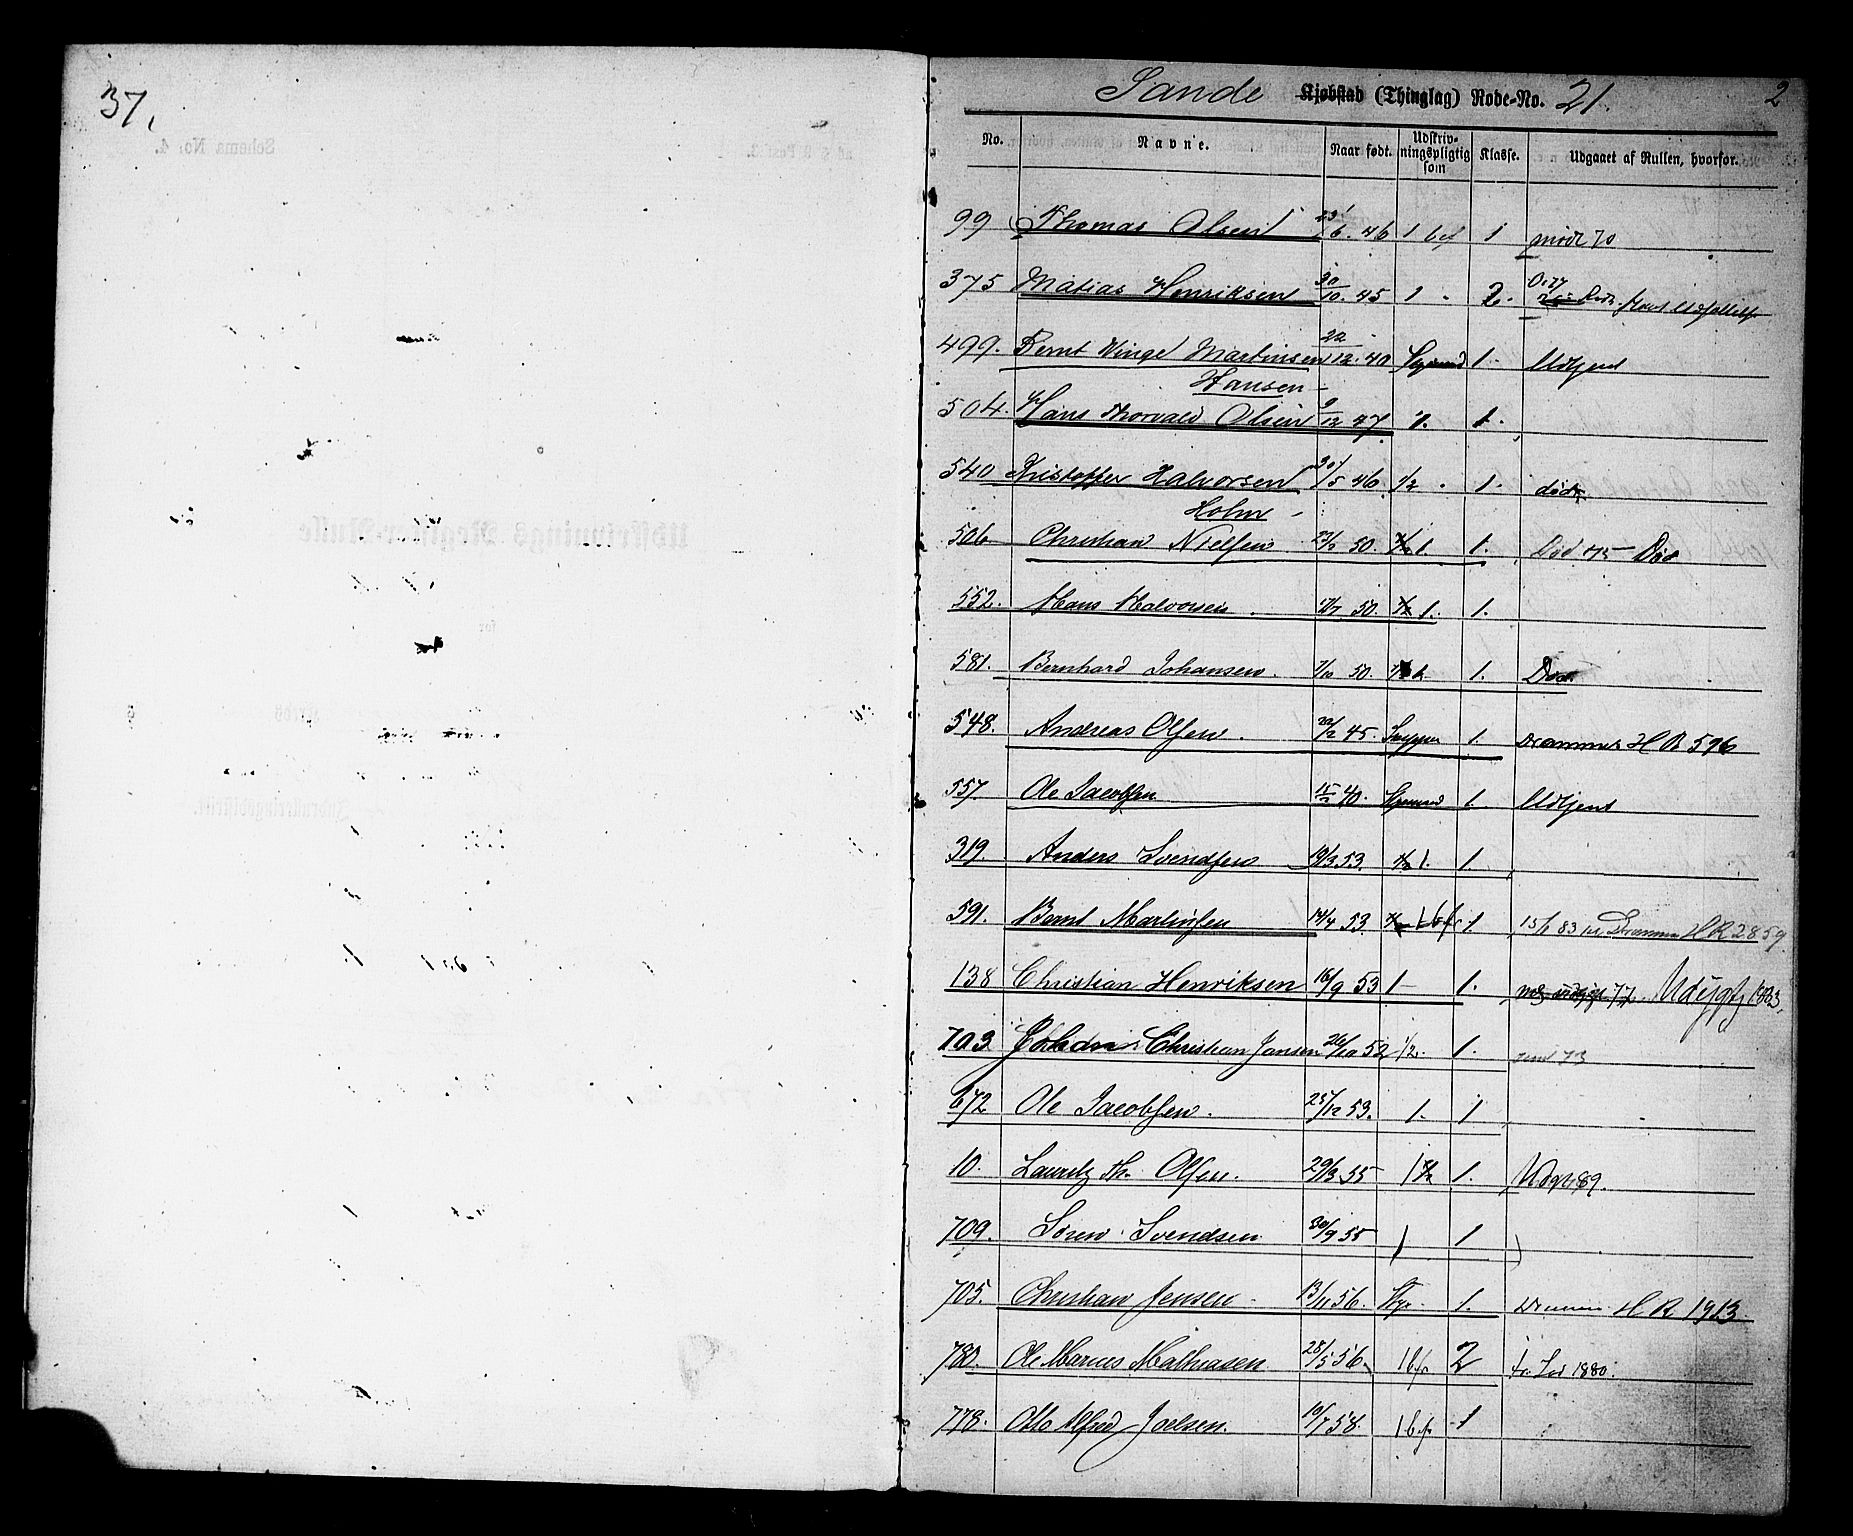 37,
Sande Kjøbstad (Thinglag) Rode-No. 21. 2
No. Navne. Naar født. Udskriv-ningspligtig som Klasse. Udgaaet af Rullen, hvorfor.
99 Thomas Olsen 23/6. 46 1 bf 1 mødt 70
375 Matias Henriksen 30/10. 45 1 " 2.
499. Bernt Winge Martinsen 22/12. 40 1. Udtjent
Hansen
504. Hans Thorvald Olsen 9/12 47 1. 1.
540 Kristoffer Halvorsen 30/5 46. 1/2 " 1. død
Holm
506 Christian Nielsen 50. 1/2 1 1. Død 75 Død
552. Hans Halvorsen 50. 1/2 1. 1.
581. Bernhard Johansen. 7/10 50. 1. Død
548. Andreas Olsen. 22/2 45. 1. Drammens H R 596
557. Ole Jacobsen 40. 1. Udtjent
319. Anders Svendsen 19/3 53. 1/2 1. 1.
591. Bernt Martinsen 14/4 53. 1 bf 1 15/1 83 Drammen H R 2859.
138 Christian Henriksen 16/9 53 1 1. 77.
703 Christian Jansen 26/10 52 1/2. 1. 73
672 Ole Jacobsen. 25/12 53. 1. 1
10. Lauritz Th. Olsen. 29/3 55 1 1/2 1. Udgt 89.
709. Søren Svendsen 30/9 55 1 1
705. Christian Jensen 13/11 56. Styr. 1. H R 1913
780. Ole Marius Mathiasen 28/5 56. 1 bf 2 1880.
778. Otto Alfred Joelsen. 10/7 58. 1 bf 1